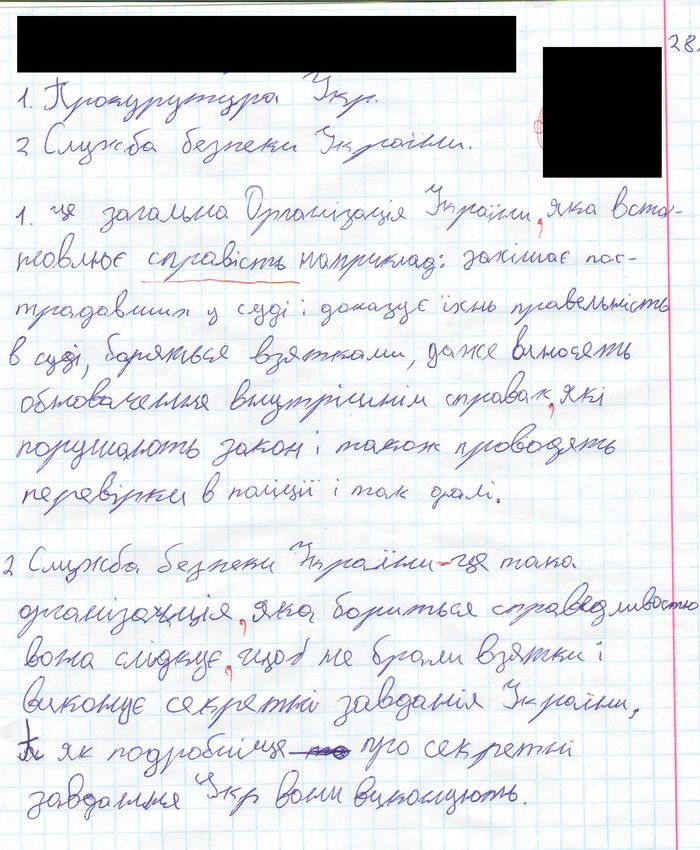 28.
1. Прокурутура Укр.
2 Служба безпеки України.
1. це загальна Організація України, яка вста-
новлює справість наприклад: захішає пос-
традавших у суді і доказує їхнь правельність
в суді, боряться взятками, даже виносять
обновачення внутрішнім справах, які
порушають закон і також проводять
перевірки в поліції і так далі.
2 Служба безпеки України - це така
організація, яка бориться справедливостю
вона слідкує, щоб не брали взятки і
виконує секретні завдання України,
як подробніще про секретні
завдання Укр вони виконують.